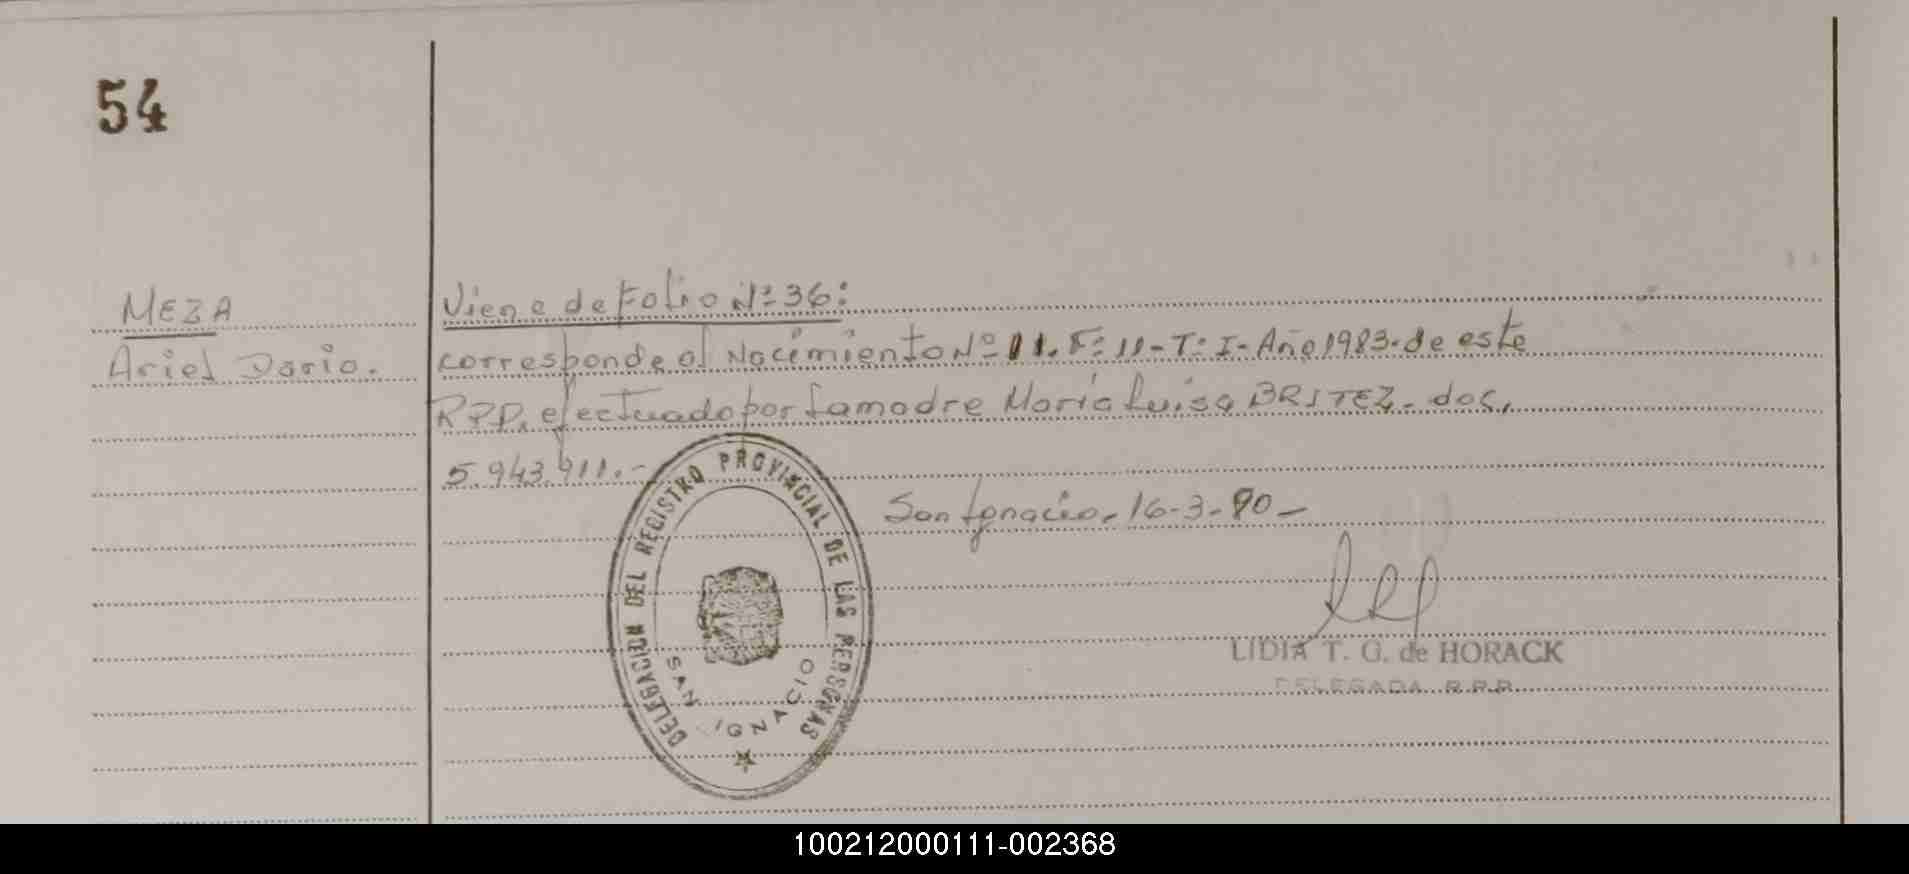 54
MEZA
Ariel Dario.
Viene de Folio Nº 36:
corresponde al Nacimiento Nº 11. Fº 11 - Tº I - Año 1983. de este
RPP. efectuado por la madre María Luisa BRITEZ - doc.
5.943.911.-
San Ignacio, 16-3-90 -
DELEGACION DEL REGISTRO PROVINCIAL DE LAS PERSONAS
SAN IGNACIO
LIDIA T. G. de HORACK
DELEGADA R.P.P.
100212000111-002368